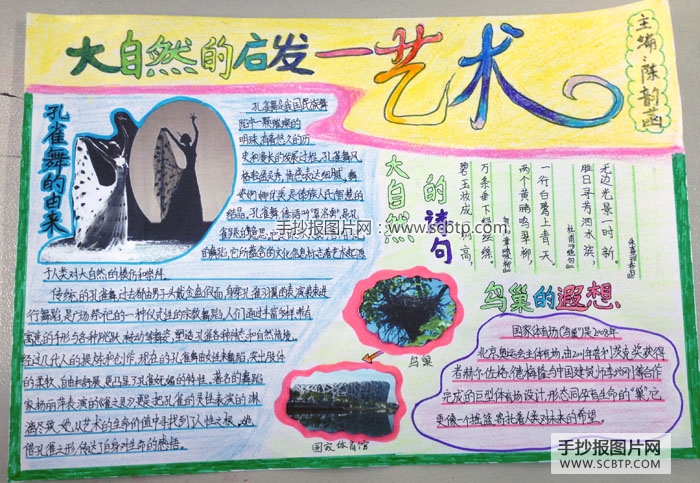 大自然的启发—艺术
主编:陈韵菡
孔雀舞的由来
孔雀舞是我国民族舞
蹈中一颗璀璨的
明珠,有着悠久的历
史和漫长的发展过程,孔雀舞风
结晶。
于人类对大自然的模仿和崇拜。
传统的孔雀舞,过去都由男子头戴金盔假面,身穿孔雀羽翼的表演装束进
行舞蹈
经过几代人的提炼和创作,现在的孔雀舞由女性来舞蹈,突出肢体
的柔软、自由和舒展,更凸显了孔雀妩媚的特性。著名的舞蹈
家杨丽萍表演的雀之灵
漓尽致,她以艺术的生命价值中寻找到了人性之根,她
借孔雀之形,传达了自身对生命的感悟。
大自然
的诗句
胜日寻芳泗水滨,
无边光景一时新。
朱熹《春日》
两个黄鹂鸣翠柳,
一行白鹭上青天。
杜甫《绝句》
碧玉妆成一树高,
万条垂下绿丝绦。
贺知章《咏柳》
手抄报图片网:www.scbtp.com
鸟巢的遐想
鸟巢
国家体育馆
国家体育场(“鸟巢”)是2008年
北京奥运会主体育场,由2001年普利茨克奖获得
者赫尔佐格、德梅隆与中国建筑师李兴刚等合作
完成的巨型体育场设计,形态如同孕育生命的“巢”,它
更像一个摇篮,寄托着人类对未来的希望。
手抄报图片网
WWW.SCBTP.COM